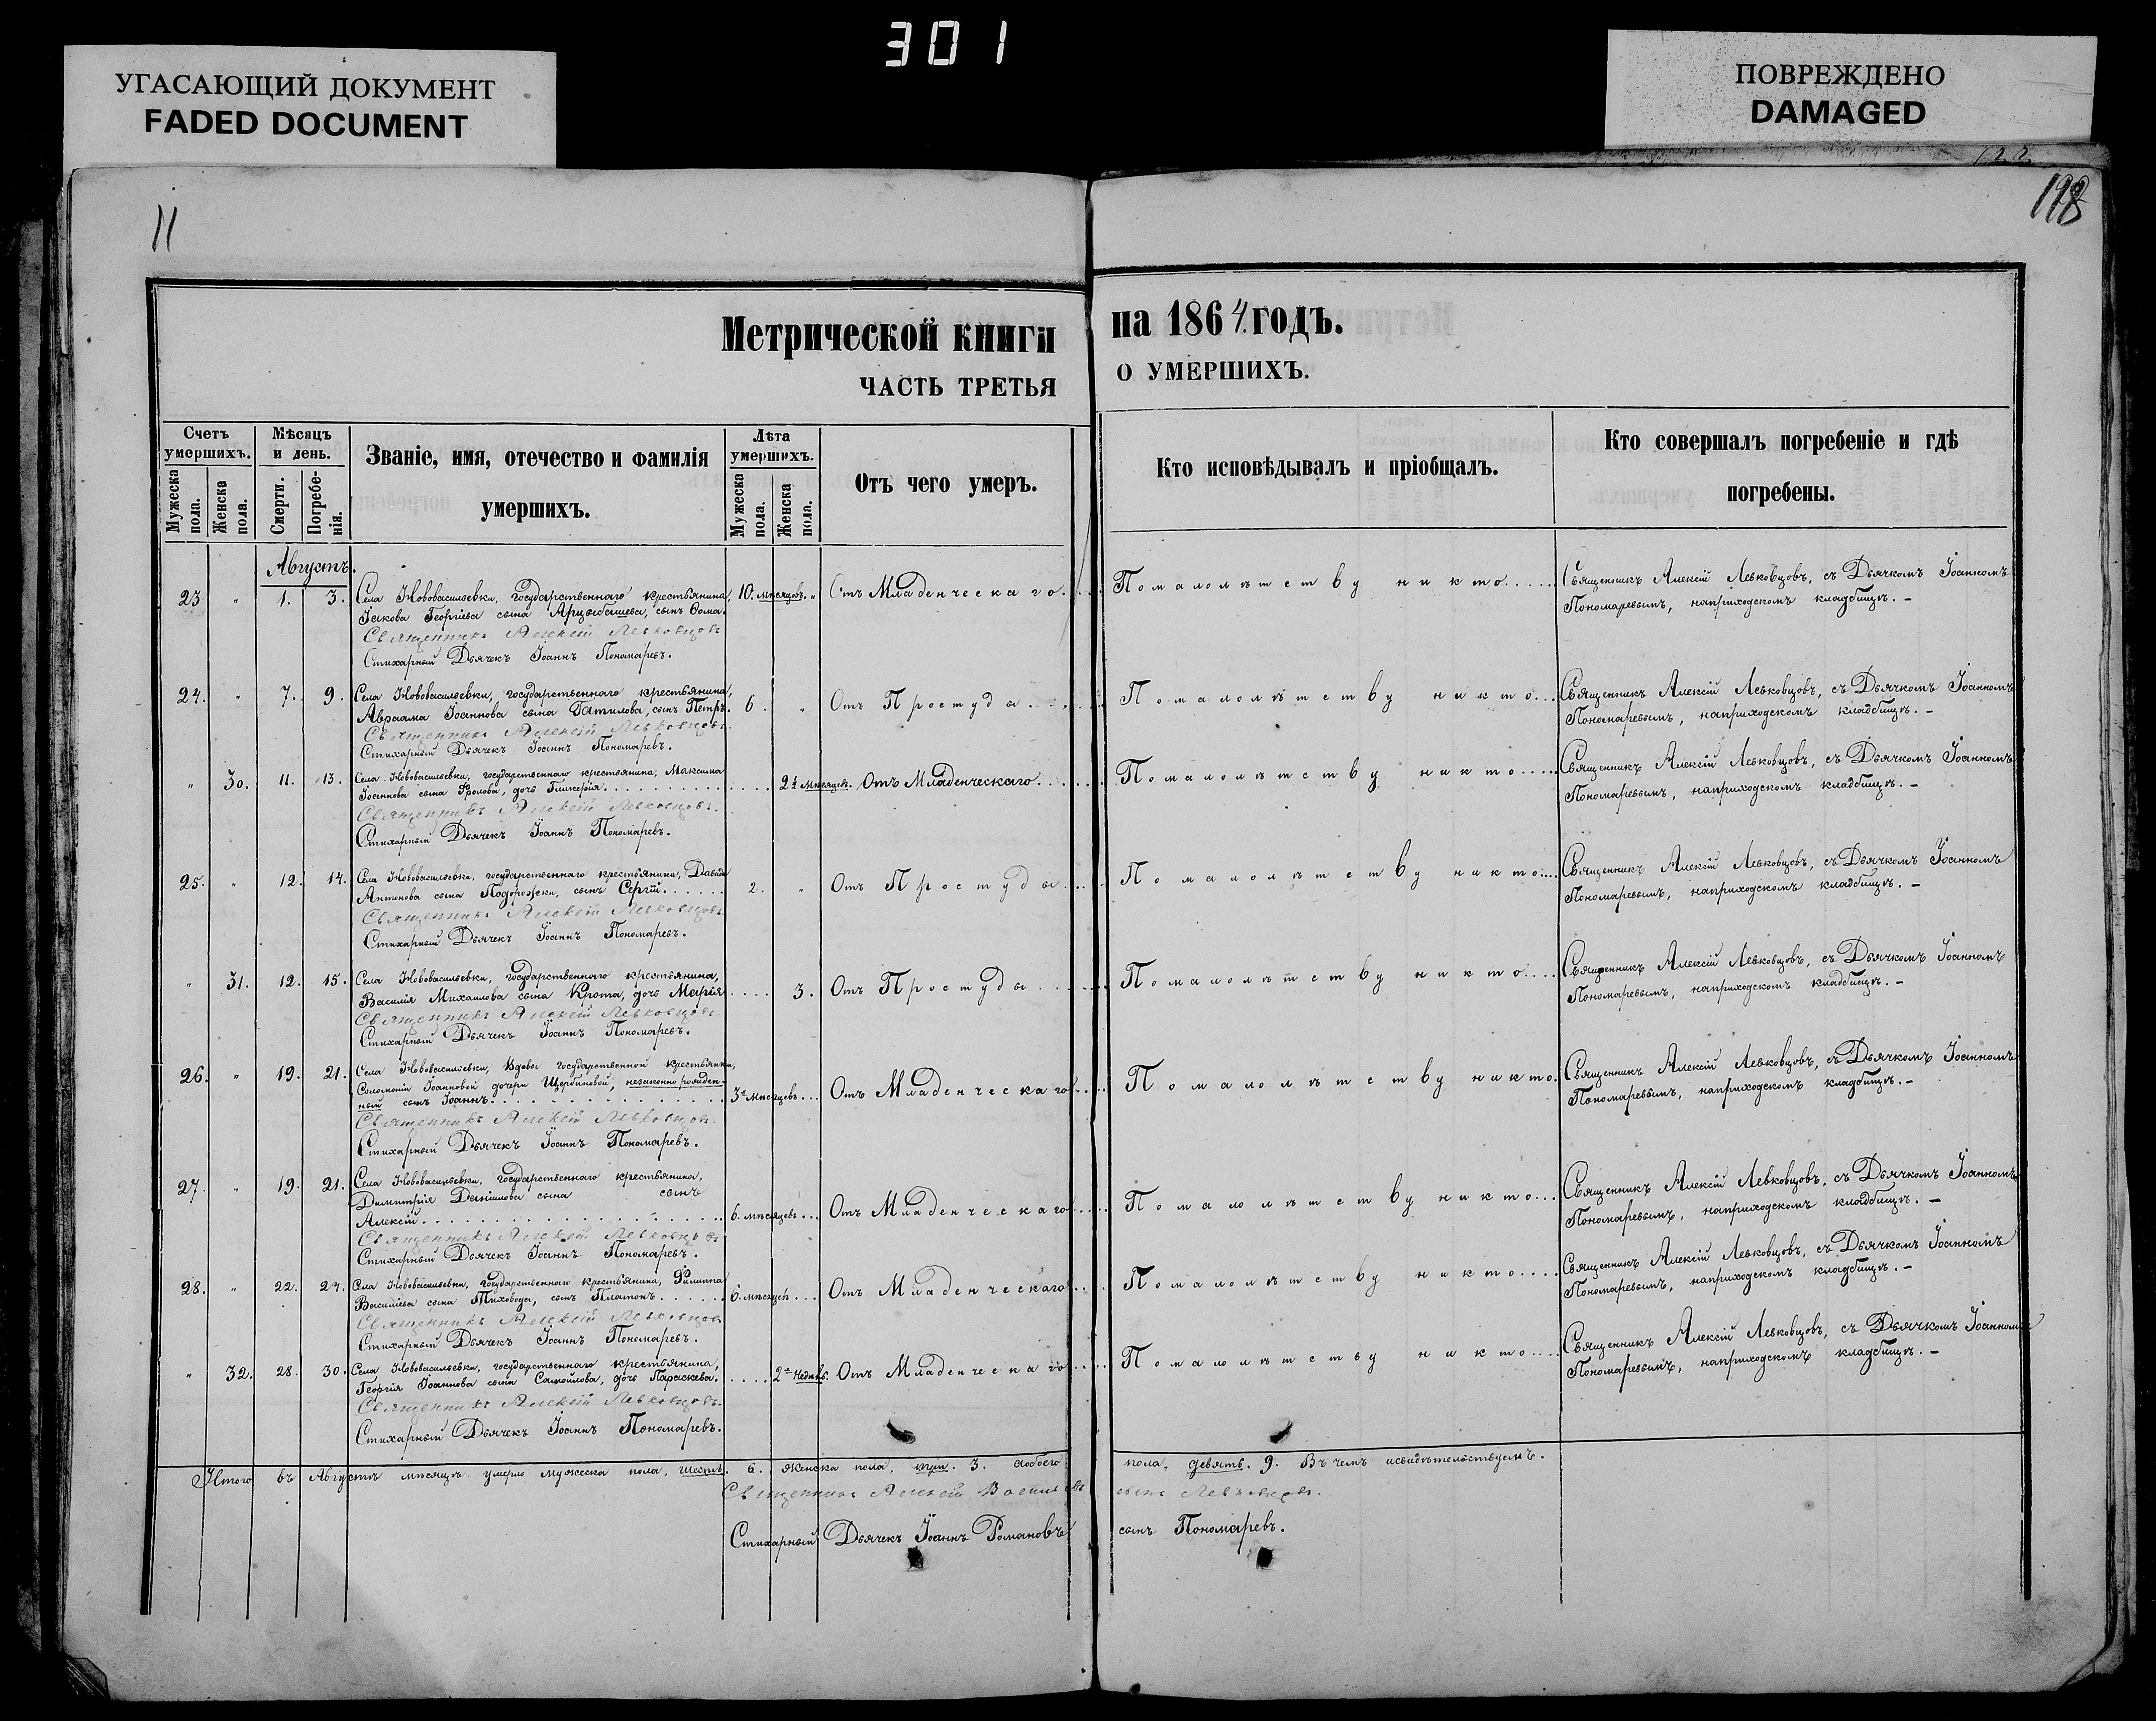 301
УГАСАЮЩИЙ ДОКУМЕНТ
FADED DOCUMENT
ПОВРЕЖДЕНО
DAMAGED
122
11
198
Метрической книги на 1864 годъ.
ЧАСТЬ ТРЕТЬЯ О УМЕРШИХЪ.
Счетъ умершихъ.
Мужеска пола.
Женска пола.
Мѣсяцъ и день.
Смерти.
Погребенія.
Званіе, имя, отечество и фамилія умершихъ.
Лѣта умершихъ.
Мужеска пола.
Женска пола.
Отъ чего умеръ.
Кто исповѣдывалъ и пріобщалъ.
Кто совершалъ погребеніе и гдѣ погребены.
Августъ.
23 " 1. 3. Села Нововасильевки, государственнаго крестьянина, 10. мѣсяцовъ. " Отъ Младенческаго. Помалолѣтству никто. Священникъ Алексій Левковцовъ, съ Дьячкомъ Іоанномъ
Іакова Георгіева сына Арцыбашева, сынъ Ѳома. Пономаревымъ, наприходскомъ кладбищѣ. –
Священникъ Алексій Левковцовъ
Стихарный Дьячекъ Іоаннъ Пономаревъ.
24. " 7. 9. Села Нововасильевки, государственнаго крестьянина, 6. " Отъ Простуды. Помалолѣтству никто. Священникъ Алексій Левковцовъ, съ Дьячкомъ Іоанномъ
Авраама Іоаннова сына сынъ Петръ. Пономаревымъ, наприходскомъ кладбищѣ. –
Священникъ Алексій Левковцовъ
Стихарный Дьячекъ Іоаннъ Пономаревъ.
" 30. 11. 13. Села Нововасильевки, государственнаго крестьянина, Максима 2½ Мѣсяцовъ. Отъ Младенческаго. Помалолѣтству никто. Священникъ Алексій Левковцовъ, съ Дьячкомъ Іоанномъ
Іоаннова сына Фролова, дочь Гликерія. Пономаревымъ, наприходскомъ кладбищѣ. –
Священникъ Алексій Левковцовъ.
Стихарный Дьячекъ Іоаннъ Пономаревъ.
25. " 12. 14. Села Нововасильевки, государственнаго крестьянина, Давида 2. " Отъ Простуды. Помалолѣтству никто. Священникъ Алексій Левковцовъ, съ Дьячкомъ Іоанномъ
Антинова сына Подорожки, сынъ Сергій. Пономаревымъ, наприходскомъ кладбищѣ. –
Священникъ Алексій Левковцовъ
Стихарный Дьячекъ Іоаннъ Пономаревъ.
" 31. 12. 15. Села Нововасильевки, государственнаго крестьянина, 3. Отъ Простуды. Помалолѣтству никто. Священникъ Алексій Левковцовъ, съ Дьячкомъ Іоанномъ
Василія Михаилова сына Крота, дочь Марія. Пономаревымъ, наприходскомъ кладбищѣ. –
Священникъ Алексій Левковцовъ
Стихарный Дьячекъ Іоаннъ Пономаревъ.
26. " 19. 21. Села Нововасильевки, вдовы государственной крестьянки, 3х мѣсяцевъ. Отъ Младенческаго. Помалолѣтству никто. Священникъ Алексій Левковцовъ, съ Дьячкомъ Іоанномъ
Соломоніи Іоанновой дочери Щербиновой, незаконно рожден- Пономаревымъ, наприходскомъ кладбищѣ. –
ный сынъ Іоаннъ.
Священникъ Алексій Левковцовъ.
Стихарный Дьячекъ Іоаннъ Пономаревъ.
27. " 19. 21. Села Нововасильевки, государственнаго крестьянина, 6. мѣсяцевъ. Отъ Младенческаго. Помалолѣтству никто. Священникъ Алексій Левковцовъ, съ Дьячкомъ Іоанномъ
Димитрія Даніилова сына сынъ Пономаревымъ, наприходскомъ кладбищѣ. –
Алексій.
Священникъ Алексій Левковцовъ
Стихарный Дьячекъ Іоаннъ Пономаревъ.
28. " 22. 24. Села Нововасильевки, государственнаго крестьянина, Филиппа 6. мѣсяцевъ. Отъ Младенческаго. Помалолѣтству никто. Священникъ Алексій Левковцовъ, съ Дьячкомъ Іоанномъ
Василіева сына Тиховода, сынъ Платонъ. Пономаревымъ, наприходскомъ кладбищѣ. –
Священникъ Алексій Левковцовъ
Стихарный Дьячекъ Іоаннъ Пономаревъ.
" 32. 28. 30. Села Нововасильевки, государственнаго крестьянина, 2х Недѣль. Отъ Младенческаго. Помалолѣтству никто. Священникъ Алексій Левковцовъ, съ Дьячкомъ Іоанномъ
Георгія Іоаннова сына Самойлова, дочь Параскева. Пономаревымъ, наприходскомъ кладбищѣ. –
Священникъ Алексій Левковцовъ.
Стихарный Дьячекъ Іоаннъ Пономаревъ.
Итого въ Августѣ мѣсяцѣ умерло мужеска пола, шесть. 6. женска пола, три. 3. обоего пола, девять. 9. Въ чемъ исвидѣтельствуемъ.
Священникъ Алексій сынъ Левковцовъ.
Стихарный Дьячекъ Іоаннъ Романовъ сынъ Пономаревъ.